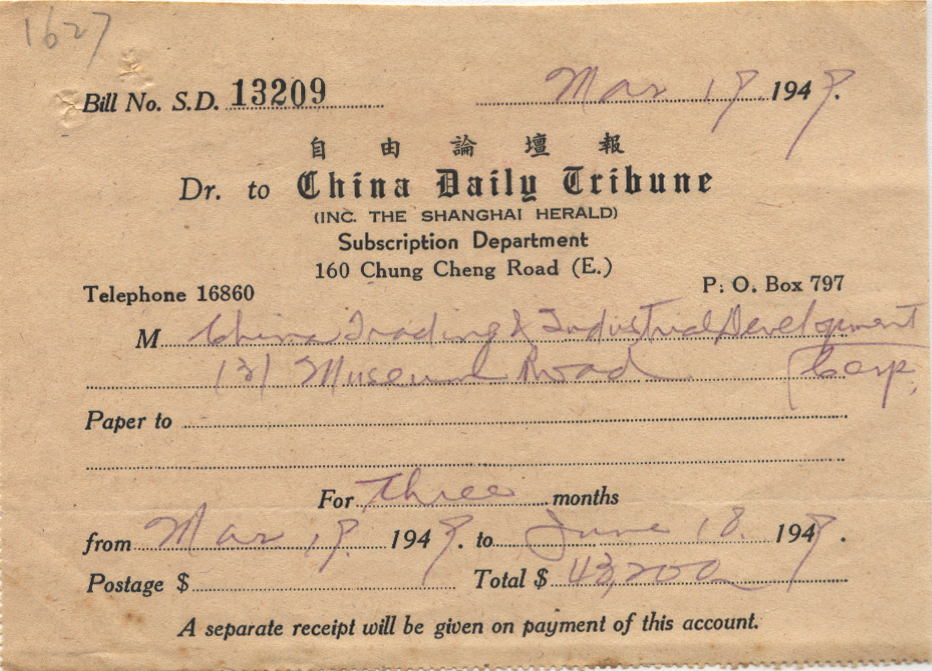 1627
Bill No. S.D. 13209 Mar 19, 1949.
自由論壇報
Dr. to China Daily Tribune
(INC. THE SHANGHAI HERALD)
Subscription Department
160 Chung Cheng Road (E.)
Telephone 16860 P. O. Box 797
M China Trading & Industrial Development
131 Museum Road Corp.
Paper to
For three months
from Mar 19, 1949. to June 18. 1949.
Postage $ Total $ 43,200
A separate receipt will be given on payment of this account.